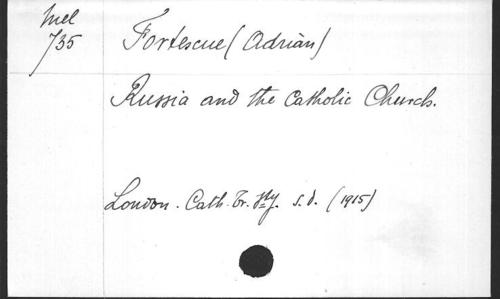 Mel
735
Fortescue (Adrian)
Russia and the Catholic Church.
London. Cath. Tr. Sty. s.d. (1915)